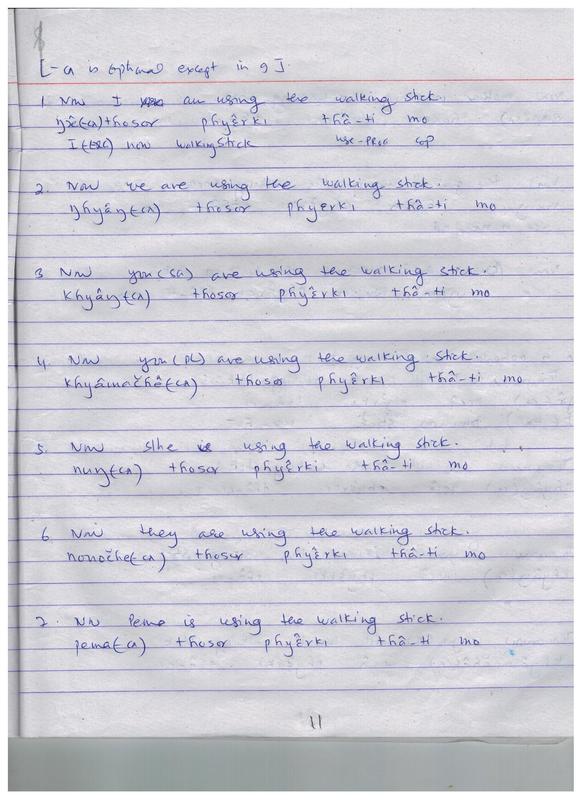 [-ca is optional except in 9].
1. Now I am using the walking stick.
ŋʒê(-ca) thosor phyɛ̂rkı thâ-ti mo
I(EXC) now walking stick use-PROG COP
2. Now we are using the walking stick.
ŋhyâŋ(-ca) thosor phyɛrkı thâ-ti mo
3 Now you (SG) are using the walking stick.
khyâŋ(-ca) thosor phyɛ̂rkı thâ-ti mo
4. Now you (PL) are using the walking stick.
khyâmačhê(-ca) thoso phyɛ̂rkı thâ-ti mo
5. Now s/he is using the walking stick.
nuŋ(-ca) thosor phyɛ̂rki thâ-ti mo
6 Now they are using the walking stick.
nonočhe(-ca) thosor phyɛ̂rkı thâ-ti mo
7. Now Pema is using the walking stick.
pema(-ca) thosor phyɛ̂rkı thâ-ti mo
11